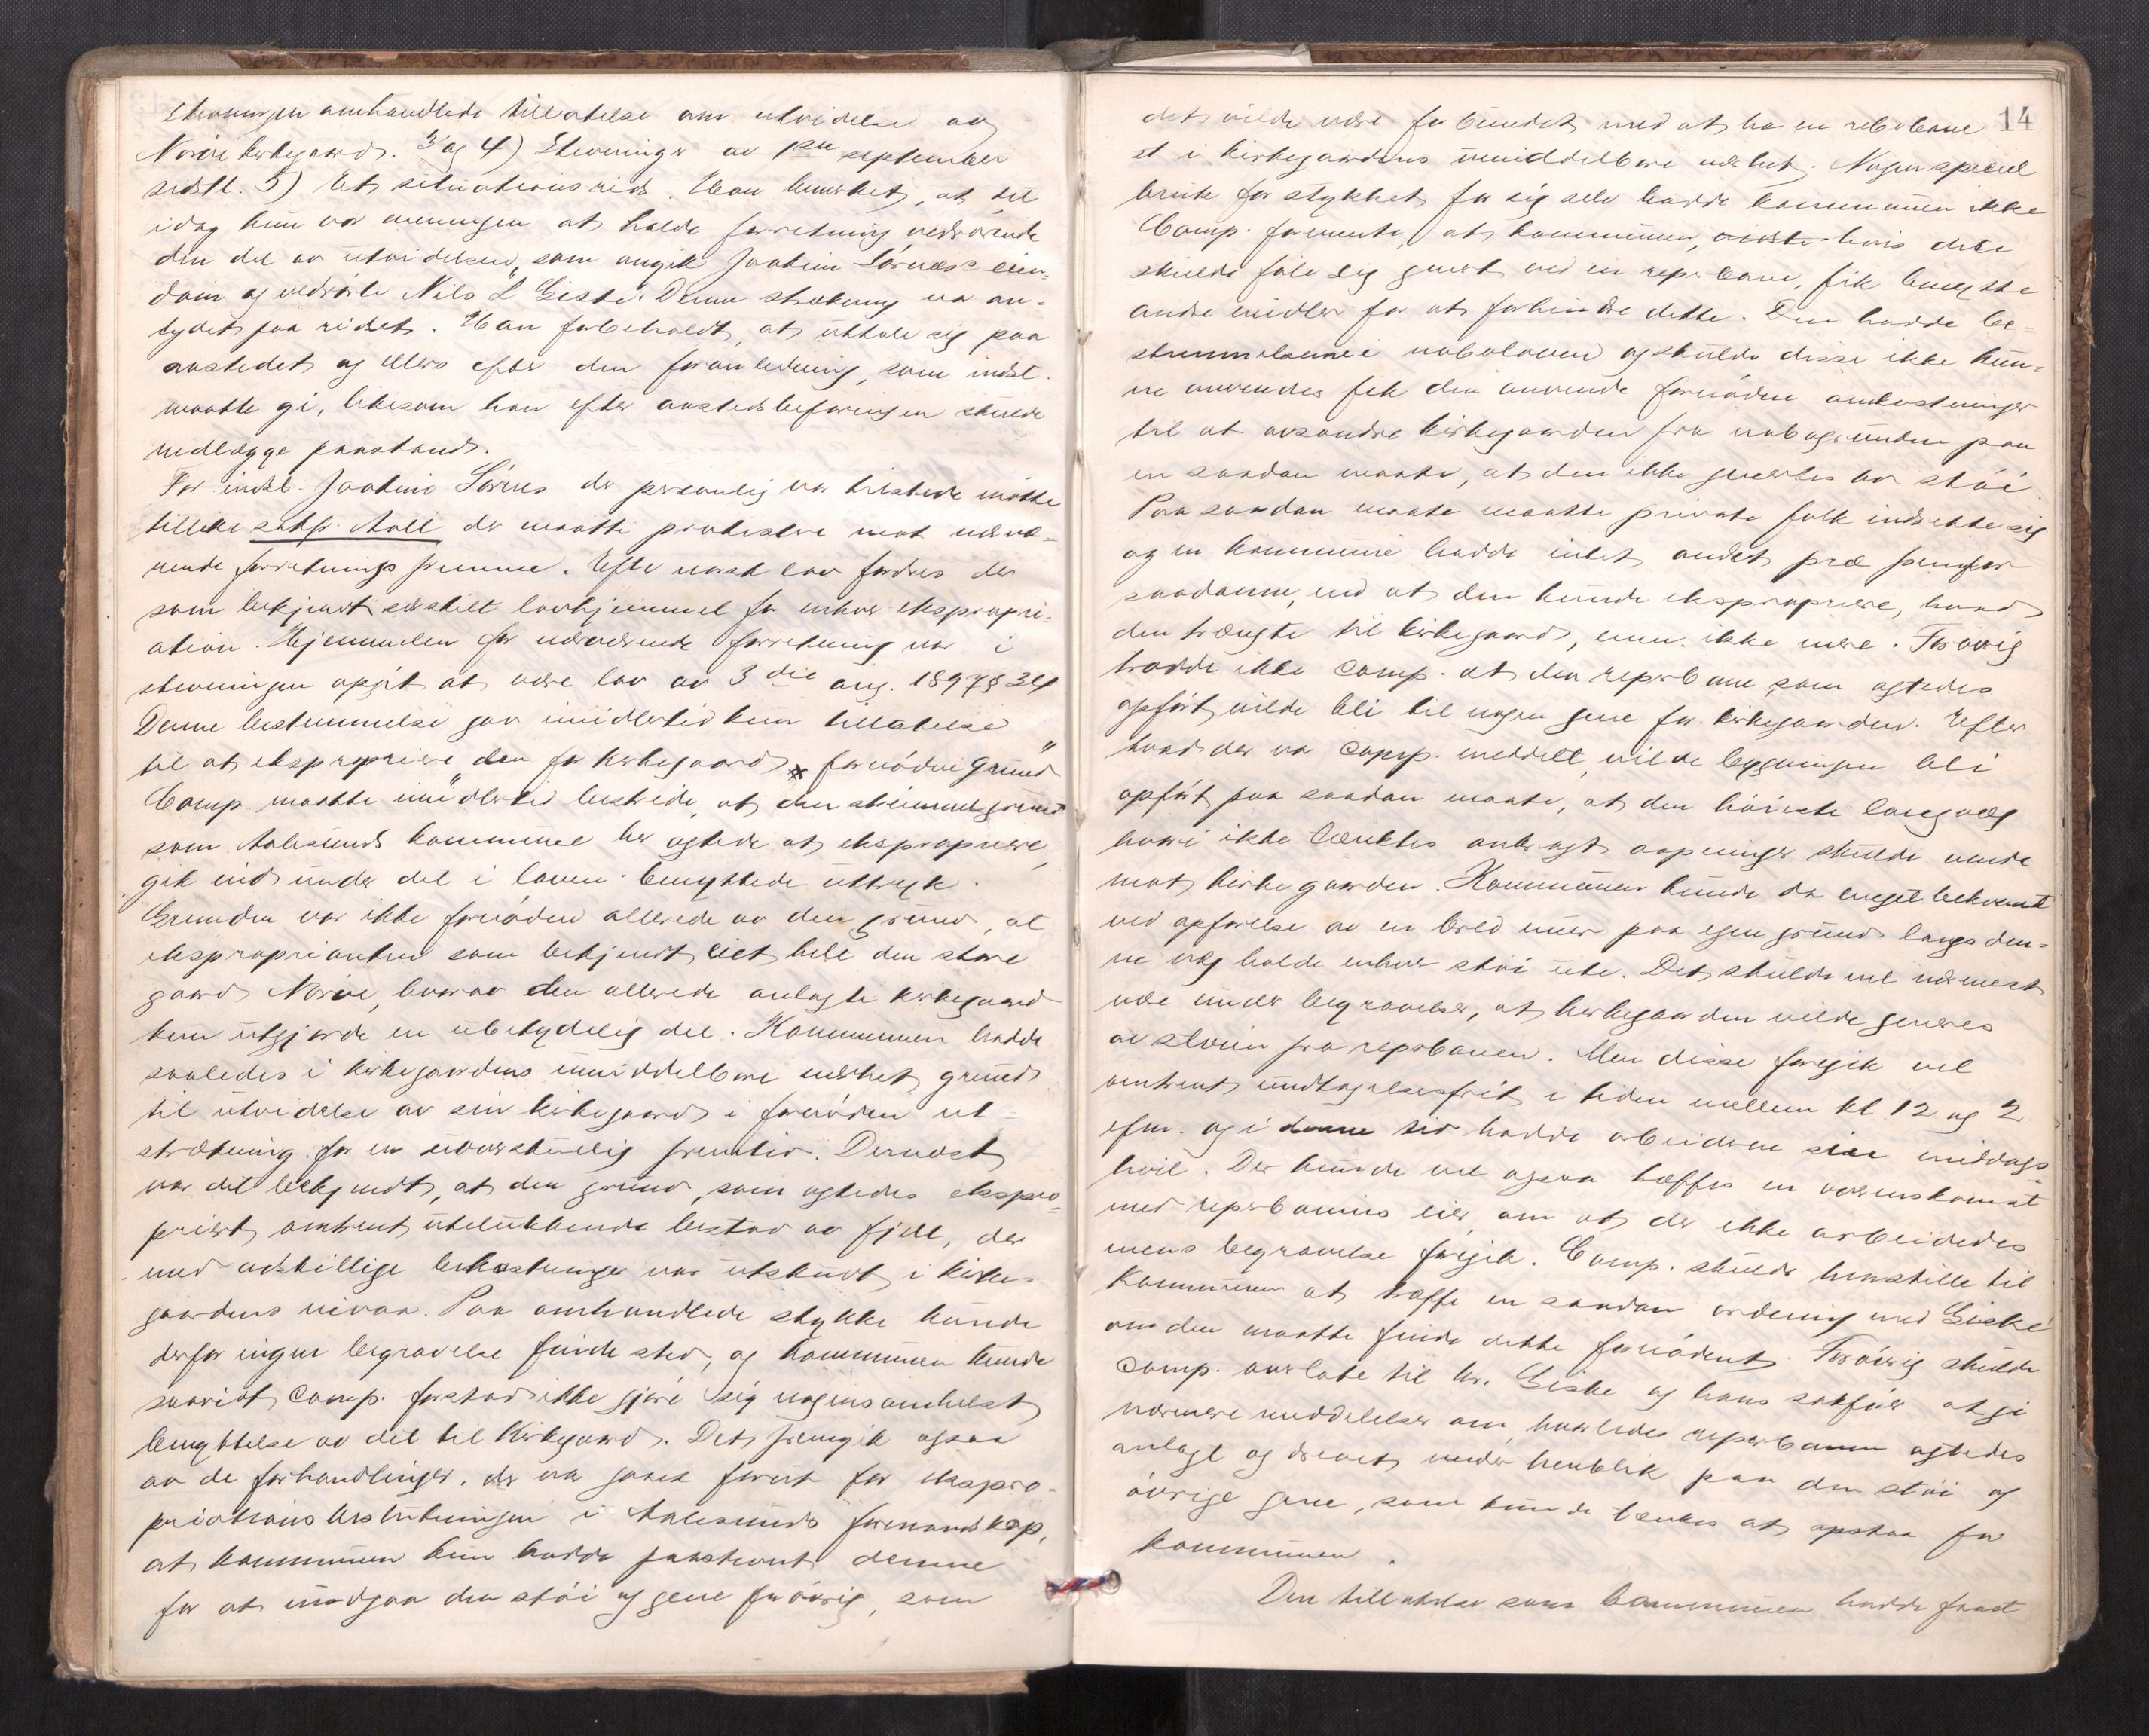 Stevningen omhandlede tillatelse om utvidelse av
Nörve kirkegaard. 3 og 4) Stevninger av 1ste september
sidstl. 5) Et situationsrids. Han bemerket, at det
idag kun var meningen at holde forretning vedrörende
den del av utvidelsen, som angik Joakim Sörnes eien-
dom og vedrörte Nils L Giske. Denne strækning var an-
tydet paa ridset. Han forbeholdt, at uttale sig paa
aastedet og ellers efter den foranledning, som indst.
maatte gi, likesom han efter aastedsbefaringen skulde
nedlægge paastand.
For indst. Joakim Sörnes der personlig var tilstede mötte
tillike sakfr. Aall der maatte protestere mot nærvæ-
rende forretnings fremme. Efter norsk lov fordres der
som bekjendt særskilt lovhjemmel for enhver ekspropri-
ation. Hjemmelen for nærværende forretning var i
stevningen opgit at være lov av 3die aug. 1897 § 34
Denne bestemmelse gav imidlertid kun tillatelse
til at ekspropriere den for kirkegaard "fornödne grund"
Comp. maatte imidlertid bestride, at den strimmel grund
som Aalesunds kommune her agtede at ekspropriere,
gik ind under det i loven benyttede uttryk.
Grunden var ikke fornöden allerede av den grund, at
ekspropriantren som bekjendt eiet hele den store
gaard Nörve, hvorav den allerede anlagte kirkegaard
kun utgjorde en ubetydelig del. Kommunen hadde
saaledes i kirkegaardens umiddelbare nærhet grund
til utvidelse av sin kirkegaard i fornöden ut-
strækning for en uoverskuelig fremtid. Dernæst
var det bekjendt, at den grund, som agtedes ekspro-
priert omtrent utelukkende bestod av fjell, der
med adskillige bekostninger var utskudt i kirke-
gaardens nivaa. Paa omhandlede stykke kunde
derfor ingen begravelse finde sted, og kommunen kunde
saavidt comp. forstod ikke gjöre sig nogensomhelst
benyttelse av det til kirkegaard. Det fremgik ogsaa
av de forhandlinger, der var gaaet forut for ekspro-
priationsbeslutningen i Aalesunds formandskap,
at kommunen kun hadde paastevnt denne
for at undgaa den stöi og gene forövrig, som
14
det vilde være forbundet med at ha en rebobane
st i kirkegaardens umiddelbare nærhet. Nogen speciel
bruk for stykket for sig selv hadde kommunen ikke
Comp. formente, at kommunen, hvis dette
skulde föle sig genert ved en reperbane, fik benytte
andre midler for at forhindre dette. Den hadde be-
stemmelserne i naboloven og skulde disse ikke kun-
ne anvendes fik den anvende fornödne omkostninger
til at avsondre kirkegaarden fra nabogrunden paa
en saadan maate, at den ikke genertes av stöi.
Paa saadan maate maatte private folk indrette sig
og en kommune hadde intet andet præ fremfor
saadanne, end at den kunde ekspropriere, hvad
den trængte til kirkegaard, men ikke mere. Forövrig
trodde ikke comp. at den reperbane som agtedes
opfört vilde bli til nogen gene for kirkegaarden. Efter
hvad der var comp. meddelt, vilde bygningen bli
opfört paa saadan maate, at den höieste langvæg
hvori ikke tænktes anbragt aapninger skulde vende
mot kirkegaarden. Kommunen kunde da meget bekvemt
ved opförelse av en bred mur paa egen grund langs den-
ne væg holde enhver stöi ute. Det skulde vel nærmest
være under begravelser, at kirkegaarden vilde generes
av stöien fra reperbanen. Men disse foregik vel
omtrent undtagelsesfrit i tiden mellem kl 12 og 2
efm. og i denne tid hadde arbeiderne sin middags-
hvil. Der kunde vel ogsaa træffes en overenskomst
med reperbanens eier om at der ikke arbeidedes
mens begravelse foregik. Comp. skulde henstille til
kommunen at træffe en saadan ordning med Giske
om den maatte finde dette fornödent. Forövrig skulde
comp. overlate til hr. Giske og hans sakförer at gi
nærmere meddelelser om, hvorledes reperbanen agtedes
anlagt og drevet under henblik paa den stöi og
övrige gene, som kunde tænkes at opstaa for
kommunen.
Den tillatelse som kommunen hadde faaet